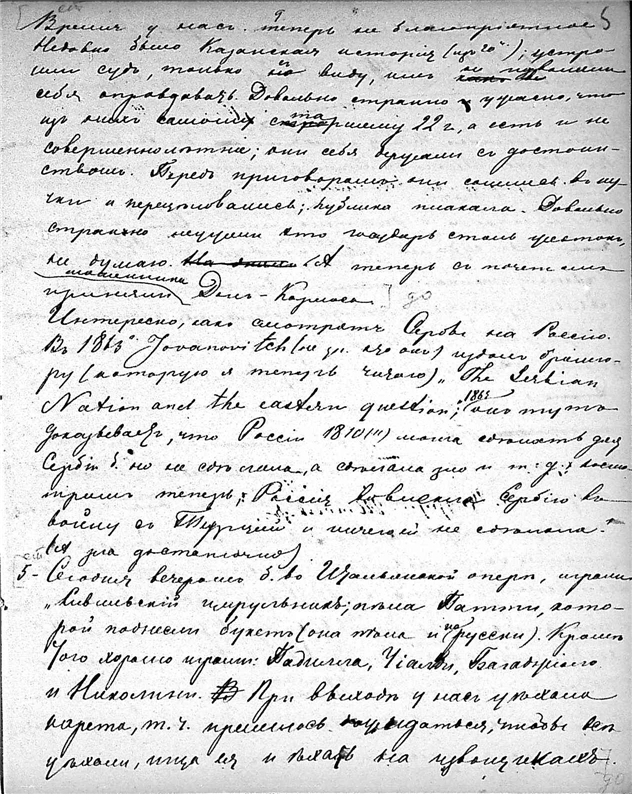 Время у насъ теперь не благопріятное 5
Недавно была Казанская исторія; устро-
или судъ, только по виду, имъ не позволили
себя оправдавать. Довольно странно и ужасно, что
изъ нихъ самому старшему 22 г, а есть и не
совершеннолѣтние; они себя держали съ достоин-
ствомъ. Передъ приговоромъ они сошлись въ ку-
чки и перецѣловались; публика плакала. Довольно
странно неужели что государь сталъ жестокъ,
не думаю. А теперь съ почетомъ
мошенника
приняли Донъ-Карлоса до
Интересно, какъ смотрятъ Сербы на Россію.
Въ 1863 Jovanovitch (не зн. кто онъ) издалъ брошю-
ру (которую я теперь читаю) „The Serbian
Nation and the eastern question" 1863 онъ тутъ
доказываетъ, что Россія 1810 (!!) могла сдѣлать для
Сербіи б. но не сдѣлала, а сдѣлала зло и т. д.
тримъ теперь, Россія Сербію въ
войну съ Турціей и ничего не сдѣлала.
(А зла достаточно)
5- Сегодня вечеромъ б. во Итальянской оперѣ, играли
„Севильскій цирульникъ; пѣла Патти, кото-
рой поднесли букетъ (она пѣла и по русски). Кромѣ
того хорошо играли: Падилла, Чіампи, Багаджіоло
и Николини. При выходѣ у насъ уѣхала
карета, т. ч. пришлось дожидаться, чтобы всѣ
уѣхали, ища ея и ѣхать на извощикахъ.
до